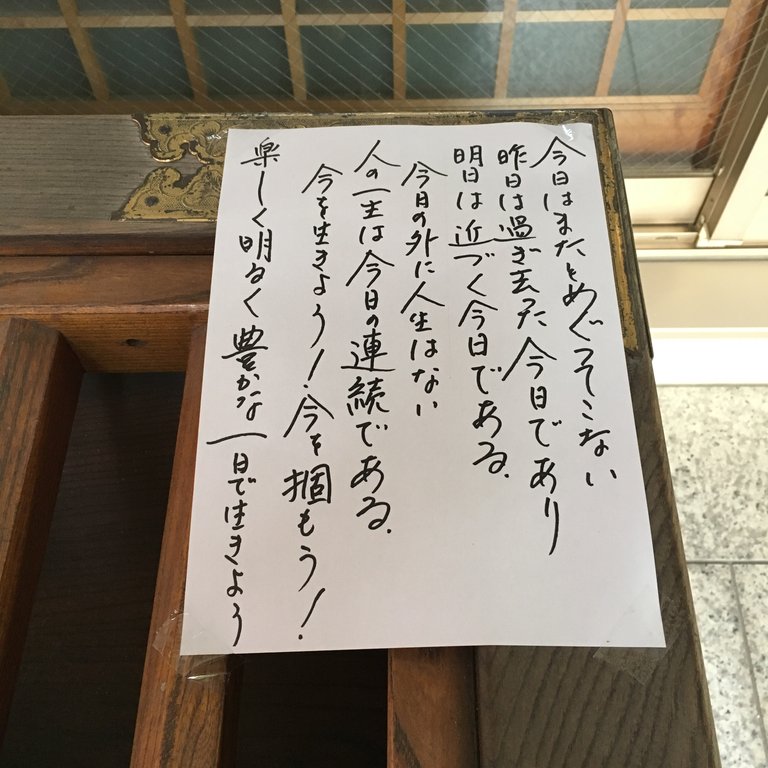 今日はまたとめぐってこない
昨日は過ぎ去った今日であり
明日は近づく今日である.
今日の外に人生はない
人の一生は今日の連続である.
今を生きよう!今を掴もう!
楽しく明るく豊かな一日で生きよう